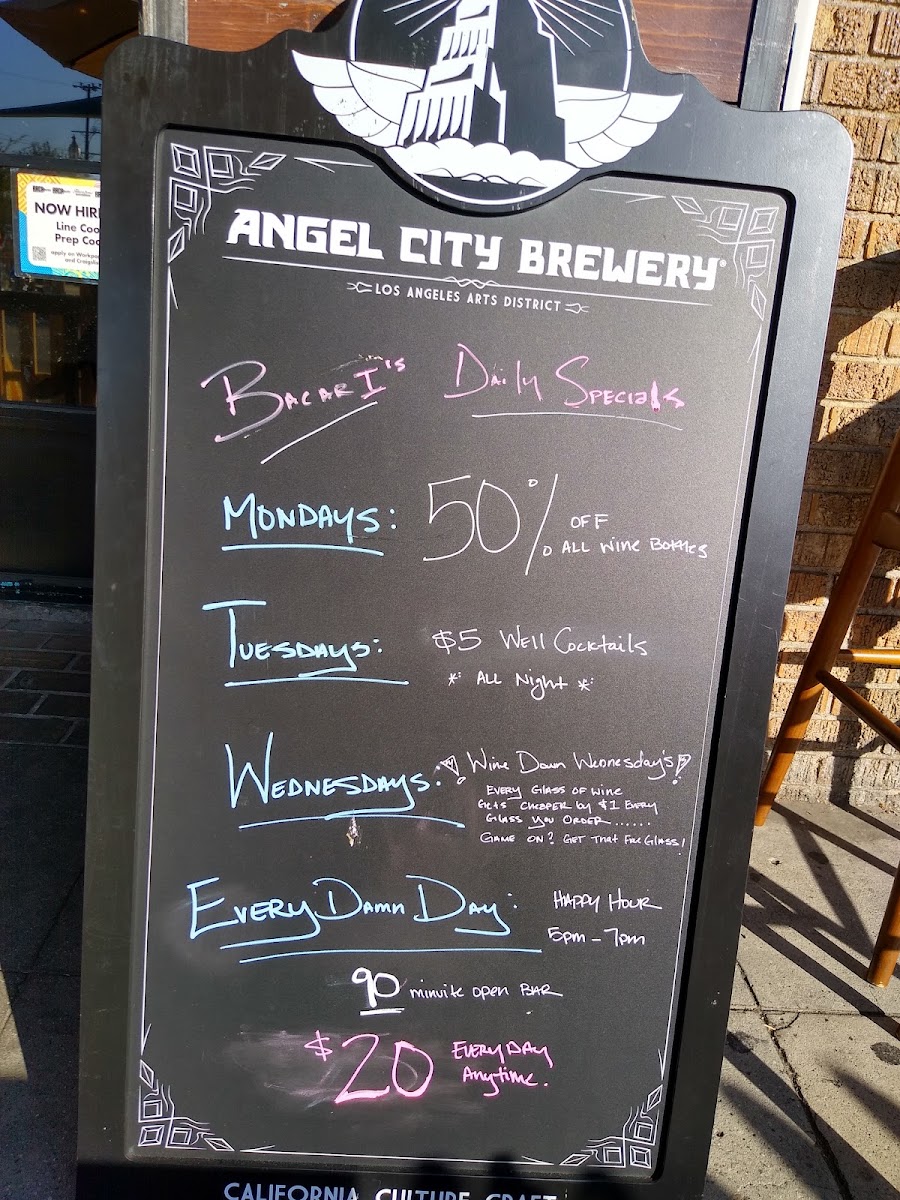 NOW HIR
Line Coo
Prep Coo
apply on Workpo
and Craigslis
ANGEL CITY BREWERY®
LOS ANGELES ARTS DISTRICT
BACARI's Daily Specials
MONDAYS: 50% OFF
ALL WINE BOTTLES
TUESDAYS: $5 Well Cocktails
* ALL Night *
WEDNESDAYS: Wine Down Wednesday's!
EVERY GLASS OF WINE
GETS CHEAPER by $1 EVERY
GLASS you ORDER......
GAME ON? GET THAT GLASS!
EVERY DAMN DAY: HAPPY HOUR
5pm - 7pm
90 minute OPEN BAR
$20 EVERYDAY
Anytime.
CALIFORNIA CULTURE CRAFT